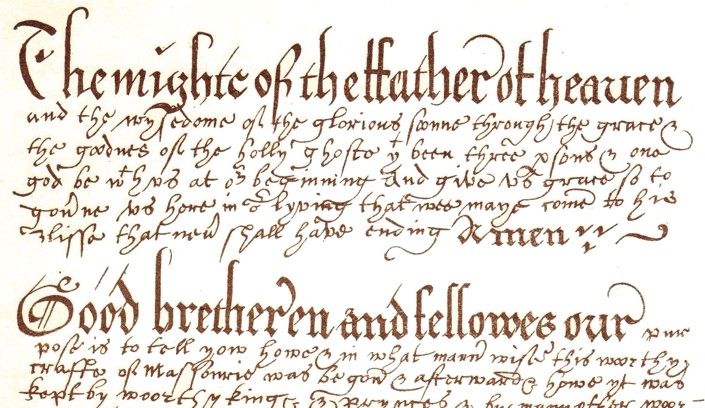 The mighte of the ffather of heaven
and the wysedome of the glorious soonne through the grace &
the goodnes of the holly ghoste yt been three psons & one
god be wth vs at or beginning and give vs grace so to
govne vs here in or lyving that wee maye come to his
blisse that nevr shall have ending Amen
Good bretheren and fellowes our pur
pose is to tell yow howe & in what mannr wise this woorthy
craffte of Massonrie was begon & afterward howe yt was
kept by woorthy kings & Prynces & by many other wor-